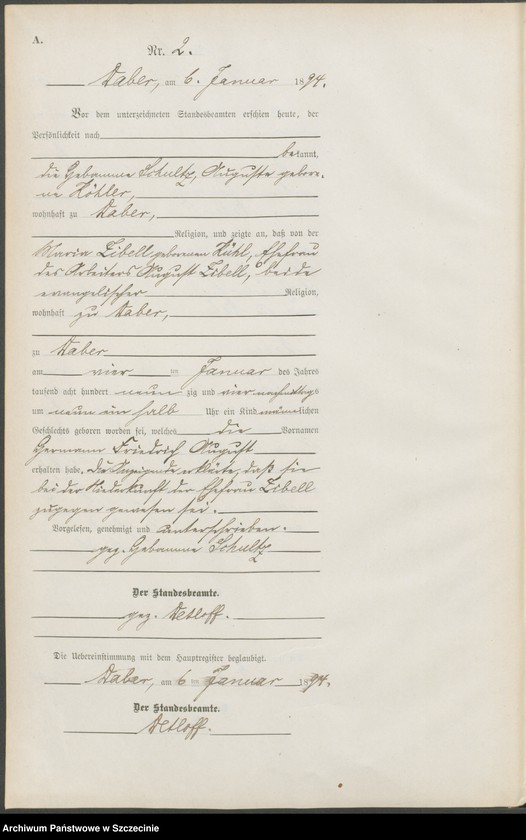 A.
Nr. 2.
Daber, am 6. Januar 1894.
Vor dem unterzeichneten Standesbeamten erschien heute, der
Persönlichkeit nach
bekannt,
die Hebamme Schultz, Auguste gebore-
ne Köhler,
wohnhaft zu Daber,
Religion, und zeigte an, daß von der
Maria Libell geborenen Kühl, Ehefrau
des Arbeiters August Libell, beide
evangelischer Religion,
wohnhaft zu Daber,
zu Daber
am vier ten Januar des Jahres
tausend acht hundert neun zig und vier nachmittags
um neun ein halb Uhr ein Kind männlichen
Geschlechts geboren worden sei, welches die Vornamen
Hermann Friedrich August
erhalten habe. Die Anzeigende erklärte, daß sie
bei der Niederkunft der Ehefrau Libell
zugegen gewesen sei.
Vorgelesen, genehmigt und unterschrieben.
gez. Hebamme Schultz
Der Standesbeamte.
gez. Detloff.
Die Uebereinstimmung mit dem Hauptregister beglaubigt.
Daber, am 6 ten Januar 1894.
Der Standesbeamte.
Detloff.
Archiwum Państwowe w Szczecinie